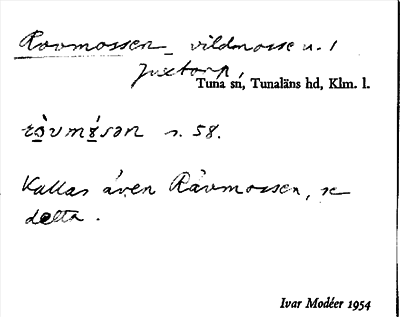 Rovmossen_ vildmosse u. 1
Juxtorp,
Tuna sn, Tunaläns hd, Klm. l.
s. 58.
Kallas även Rävmossen, se
detta.
Ivar Modéer 1954